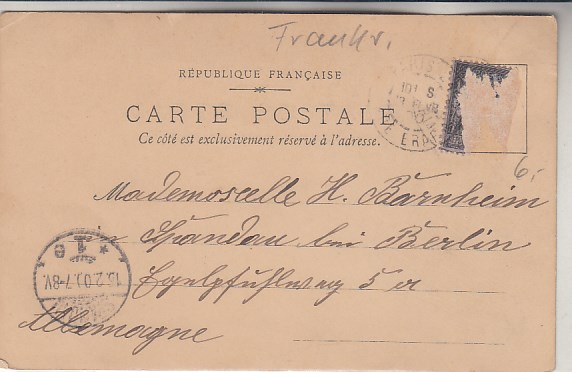 Frankr.
RÉPUBLIQUE FRANÇAISE
CARTE POSTALE
Ce côté est exclusivement réservé à l'adresse.
6,-
Mademoiselle H. Barnheim
in Spandau bei Berlin
Egelpfuhlweg 5 a
Allemagne
15.2.0 7-8V.